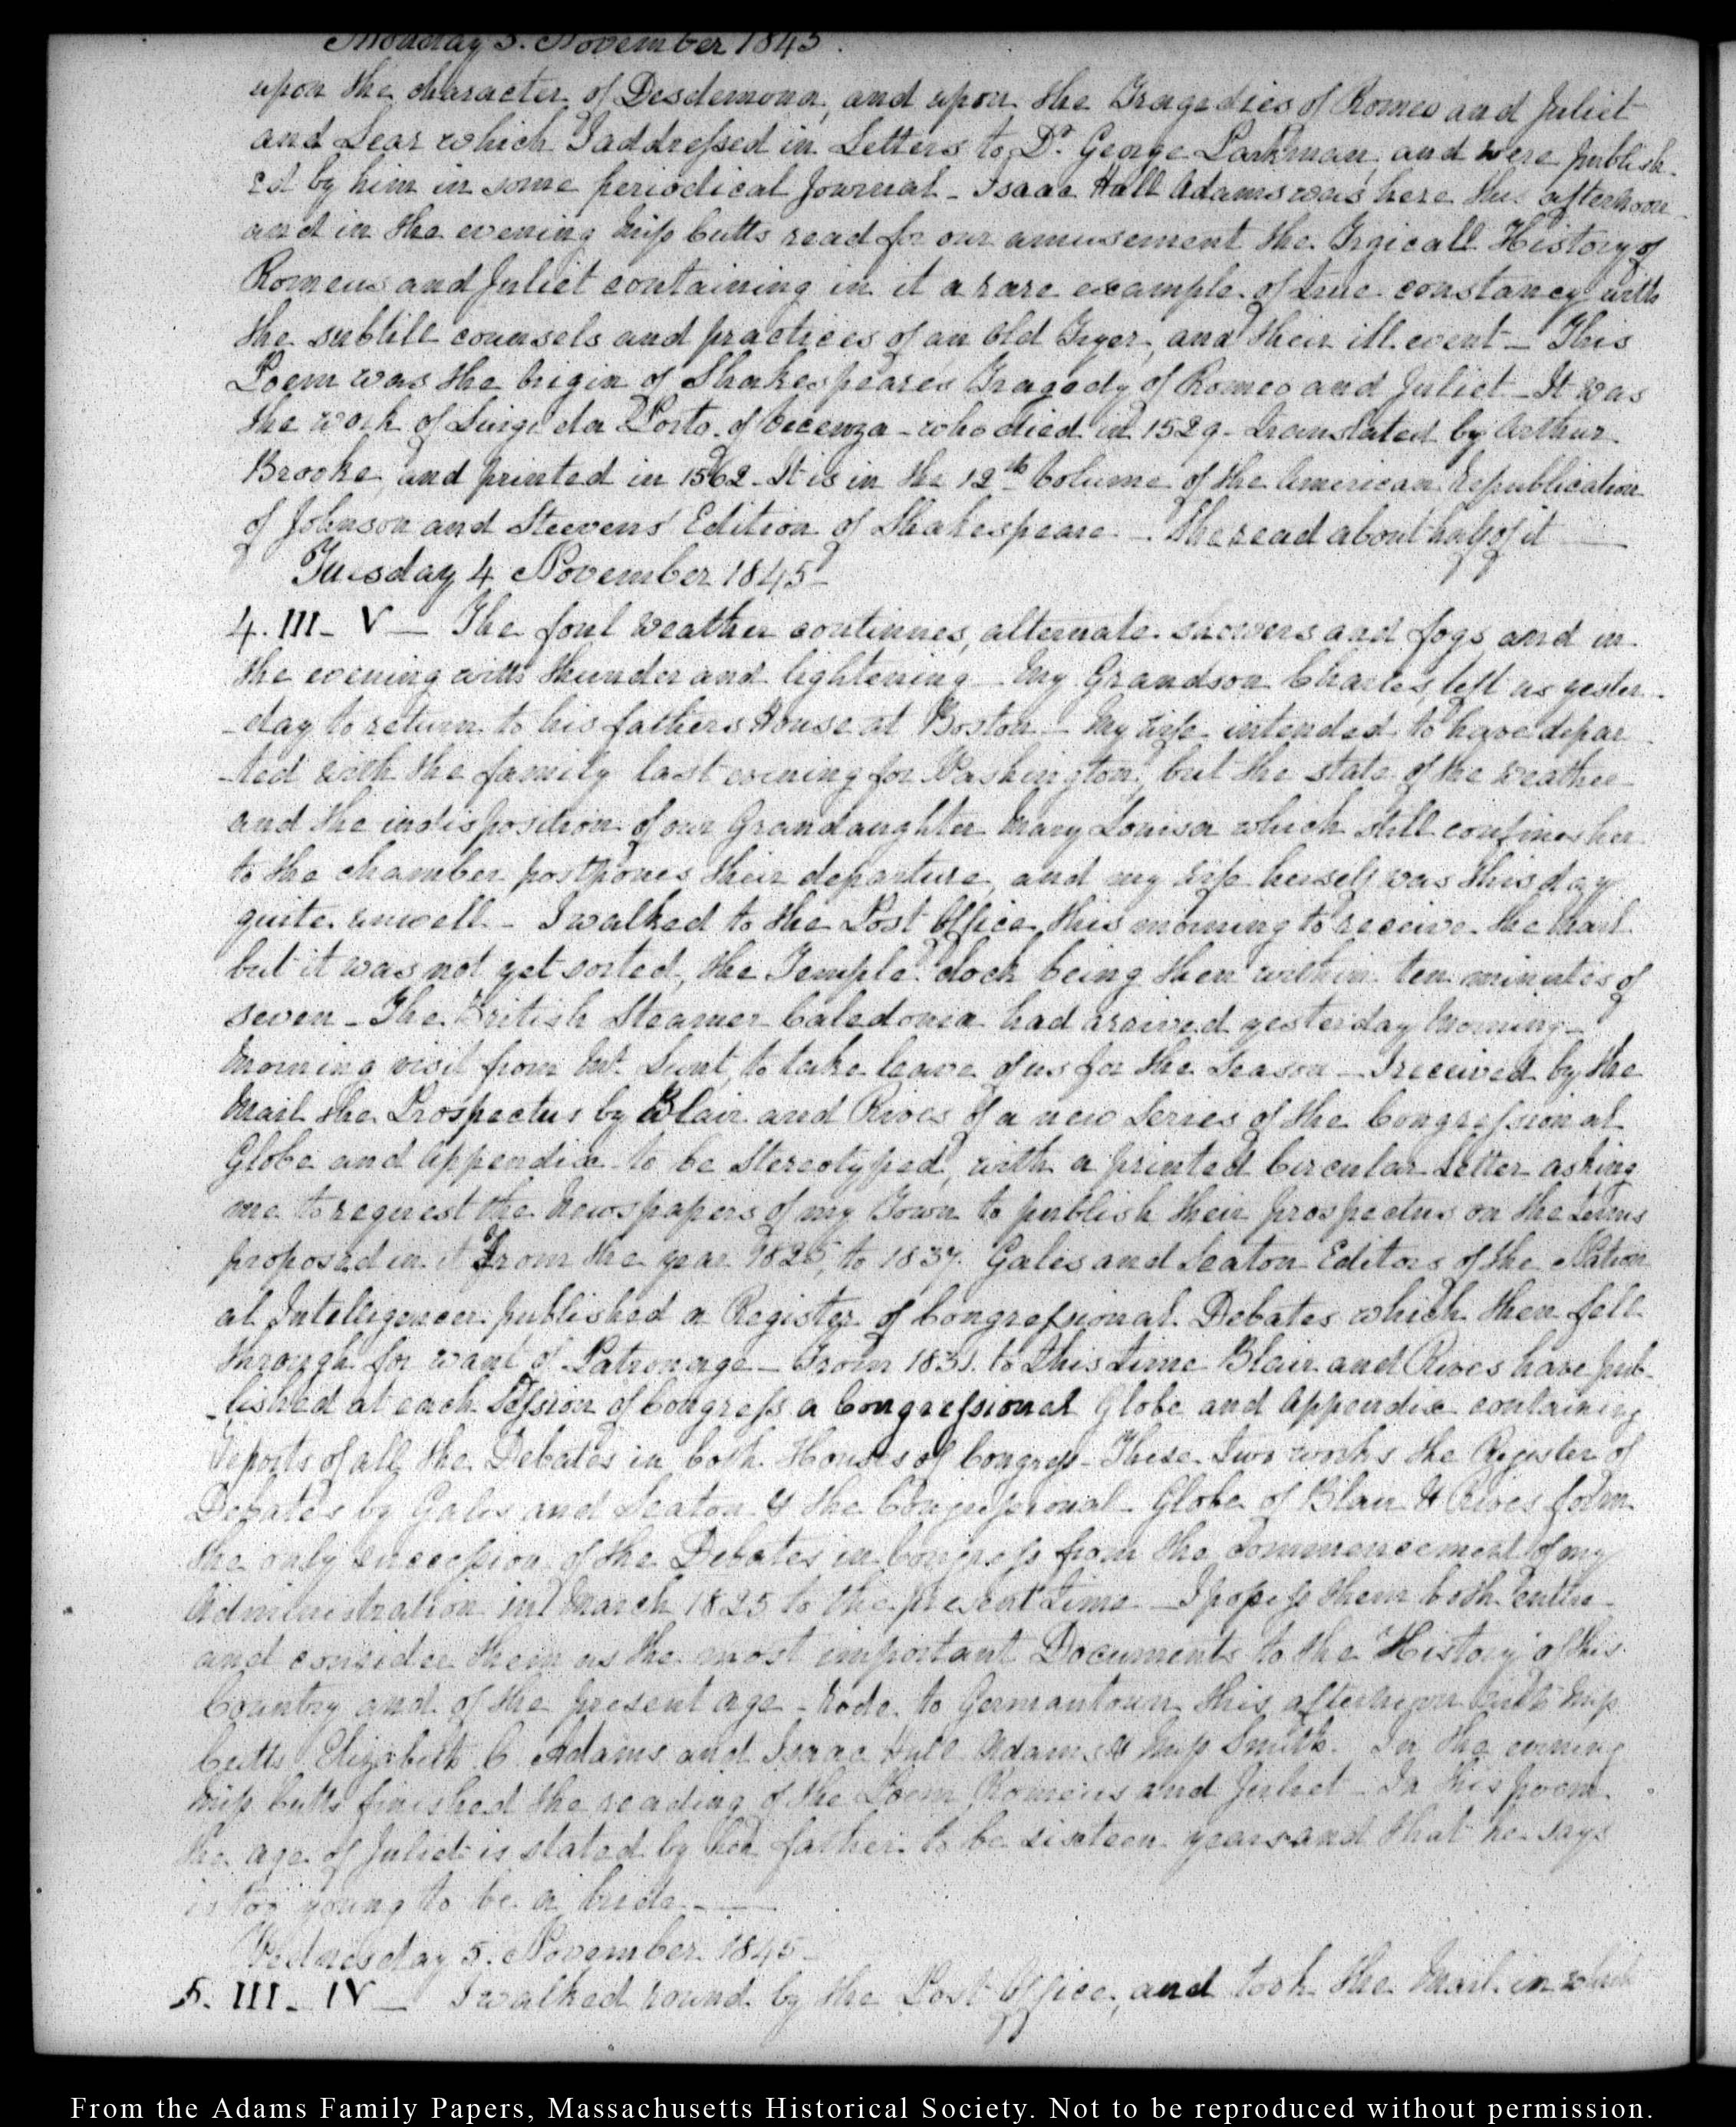 Monday 3. November 1845.
upon the character of Desdemona, and upon the Tragedies of Romeo and Juliet
and Lear which I addressed in Letters to Dr. George Parkman, and were publish-
ed by him in some periodical Journal — Isaac Hull Adams was here this afternoon
and in the evening Miss Cutts read for our amusement the Trgicall History of
Romeus and Juliet containing in it a rare example of true constancy with
the subtill counsels and practices of an old Fryer, and their ill event — This
Poem was the Origin of Shakespeares Tragedy of Romeo and Juliet — It was
the work of Luigi da Porto of Vicenza — who died in 1529 — translated by Arthur
Brooke, and printed in 1562 — It is in the 12th Volume of the American Republication
of Johnson and Steevens' Edition of Shakespeare — She read about half of it —
Tuesday 4 November 1845 —
4. III — V — The foul weather continues, alternate showers and fogs and in
the evening with thunder and lightening — My Grandson Charles, left us yester-
-day to return to his fathers House at Boston — My wife intended to have depar-
-ted with the family last evening for Washington, but the state of the weather
and the indisposition of our Grandaughter Mary Louisa which still confines her
to the chamber postpones their departure, and my wife herself was this day
quite unwell — I walked to the Post Office this morning to receive the Mail
but it was not yet sorted, the Temple clock being then within ten minutes of
seven — The British Steamer Caledonia had arrived yesterday Morning —
Morning visit from Mr. Lunt, to take leave of us for the Season — I received by the
Mail the Prospectus by Blair and Rives of a new Series of the Congressional
Globe and Appendix to be Stereotyped, with a printed Circular Letter asking
me to request the Newspapers of my Town to publish their prospectus on the terms
proposed in it From the year 1825, to 1837. Gales and Seaton Editors of the Nation
al Intelligencer published a Register of Congressional Debates which then fell
through for want of Patronage — From 1831. to this time Blair and Rives have pub-
-lished at each Session of Congress a Congressional Globe and Appendix containing
reports of all the Debates in both Houses of Congress — These two works the Register of
Debates by Gales and Seaton & the Congressional Globe of Blair & Rives form
the only succession of the Debates in Congress from the commencement of my
Administration in March 1825 to the present time — I possess them both entire
and consider them as the most important Documents to the History of this
Country and of the present age — Rode to Germantown this afternoon with Miss
Cutts Elizabeth C. Adams and Isaac Hull Adams & Miss Smith. In the evening
Miss Cutts finished the reading of the Poem Romeus and Juliet — In this poem
the age of Juliet is stated by her father to be sixteen years and that he says
is too young to be a bride —
Wednesday 5. November 1845 —
5. III — IV — I walked round by the Post Office, and took the Mail in which
From the Adams Family Papers, Massachusetts Historical Society. Not to be reproduced without permission.